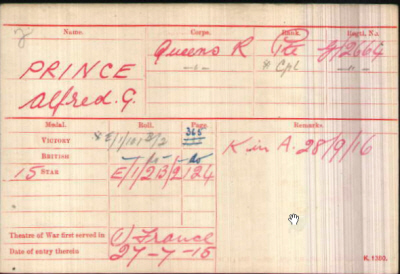 Name. Corps. Rank. Regtl. No.
PRINCE Queens R Pte G/2664
Alfred. G. -"- Cpl -"-
Medal. Roll. Page Remarks.
VICTORY 365
BRITISH -do- -do- K in A. 28/9/16
15 STAR E/1/2B/2 124
Theatre of War first served in (1) France
Date of entry therein 27-7-15
K. 1380.